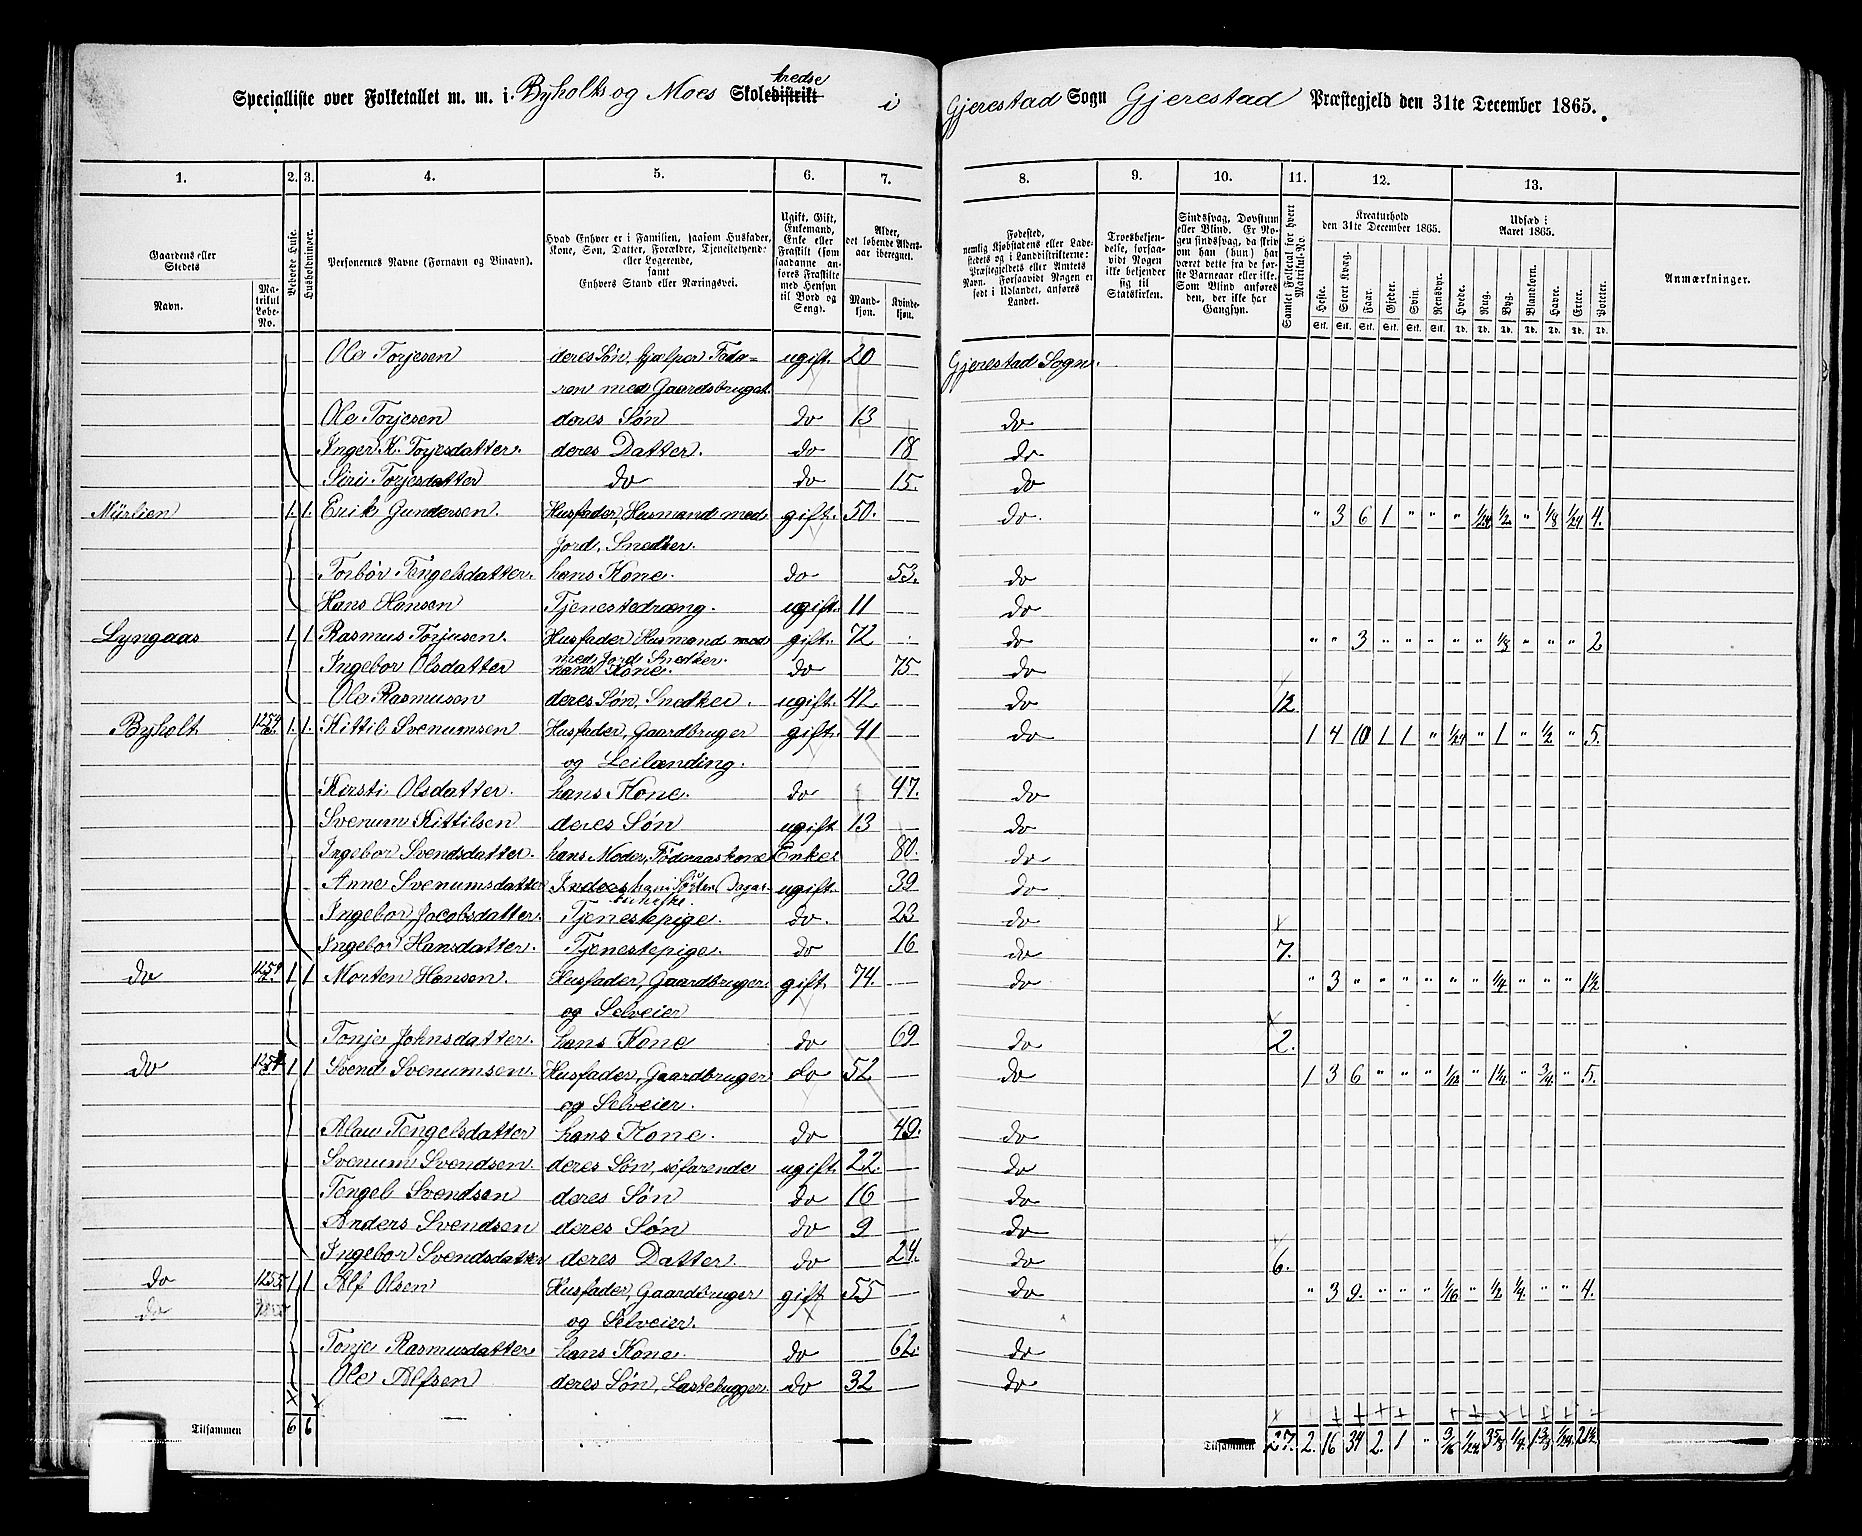 Specialliste over Folketallet m. m. i Byholts og Moes Skoledistrikt kredse i Gjerestad Sogn Gjerestad Præstegjeld den 31te December 1865.
1. 2. 3. 4. 5. 6. 7. 8. 9. 10. 11. 12. 13.
Gaardens eller Stedets
Navn.
Matrikul Løbe-No.
Beboede Huse.
Husholdninger.
Personernes Navne (Fornavn og Tilnavn).
Hvad Enhver er i Familien, saasom Husfader, Kone, Søn, Datter, Forældre, Tjenestetyende eller Logerende, samt Enhvers Stand eller Næringsvei.
Ugift, Gift, Enkemand, Enke eller Fraskilt (som saadanne anføres Fraskilte med Hensyn til Bord og Seng).
Alder, det løbende Aldersaar iberegnet.
Mandkjøn. Kvindekjøn.
Fødested, nemlig Kjøbstadens eller Ladestedets og i Landdistrikterne: Præstegjeldets eller Amtets Navn. Forsaavidt Nogen er født i Udlandet, anføres Landet.
Troesbekjendelse, forsaavidt Nogen ikke bekjender sig til Statskirken.
Sindssvag, Døvstum eller Blind. Er Nogen sindssvag, da skriv om han (hun) har været dette fra de første Barneaar eller ikke. Som Blind anføres den, der ikke har Gangsyn.
Samlet Folketal for hvert Matrikul-No.
Kreaturhold den 31te December 1865.
Heste. Stort Kvæg. Faar. Gjeder. Svin. Rensdyr.
Udsæd i Aaret 1865.
Hvede. Rug. Byg. Blandkorn. Havre. Erter. Poteter.
Anmærkninger.
Ole Torjesen deres Søn, hjælper Fade- ugift 20 Gjerestad Sogn.
ren med Gaardsbruget.
Ole Torjesen deres Søn do 13 do
Inger K. Torjesdatter. deres Datter. do 18 do
Siri Torjesdatter do do 15. do
Myrlien 1. 1. Erik Gundersen. Husfader, Husmand med gift. 50. do. " 3 6 1 " " " 1/24 1/2 " 1/8 1/24 4.
Jord, Snedker.
Torbor Tengelsdatter. hans Kone. do 53. do
Hans Hansen Tjenestedræng. ugift. 11 do
Lyngaas 1 1. Rasmus Torjusen. Husfader, Husmand med gift. 72 do " " 3 " " " " " 1/8 " " " 2
med Jord Snedker.
Ingebor Olsdatter hans Kone. do 75 do
Ole Rasmusen deres Søn, Snedker. ugift. 42 do 12.
Byholt 1254 1. 1. Kittil Svenumsen Husfader, Gaardbruger gift. 41 do 1 4 10 1 1 " 1/24 " 1 " 1/2 " 5.
og Leilænding.
Kirsti Olsdatter. hans Kone. do 47. do
Svenum Kittilsen deres Søn ugift 13 do
Ingebor Svendsdatter. hans Moder, Føderaadskone Enke 80. do
Anne Svenumsdatter ugift. 39 do
Ingebor Jacobsdatter. Tjenestepige. do. 23 do
Ingebor Hansdatter. Tjenestepige. do 16 do 7.
do 1254 1 1 Morten Hansen. Husfader, Gaardbruger. gift. 74. do " 3 " " " " " " 1/4 " " " 1½
og Selveier
Tonje Johnsdatter. hans Kone do 69 do 2.
do 1254 1 1 Svend Svenumsen. Husfader, Gaardbruger do 52 do 1 3 6 " " " 1/12 " 1¼ " 3/4 " 5.
og Selveier.
Alau Tengelsdatter hans Kone. do 49. do
Svenum Svendsen. deres Søn, søfarende ugift. 22. do
Tengel Svendsen deres Søn do 16 do
Anders Svendsen deres Søn do 9 do
Ingebor Svendsdatter deres Datter. do 24. do 6.
do 1255 1 1 Alf Olsen Husfader, Gaardbruger gift 55 do " 3 9. " " " 1/16 " 1/2 1/4 " " 4.
do og Selveier.
Tonje Rasmusdatter hans Kone. do 62. do
Ole Alfsen deres Søn, do 32 do
Tilsammen 6 6 Tilsammen 27. 2. 16 34 2. 1 " 3/16 1/24 3 5/8 1/4 1 3/8 1/24 21½